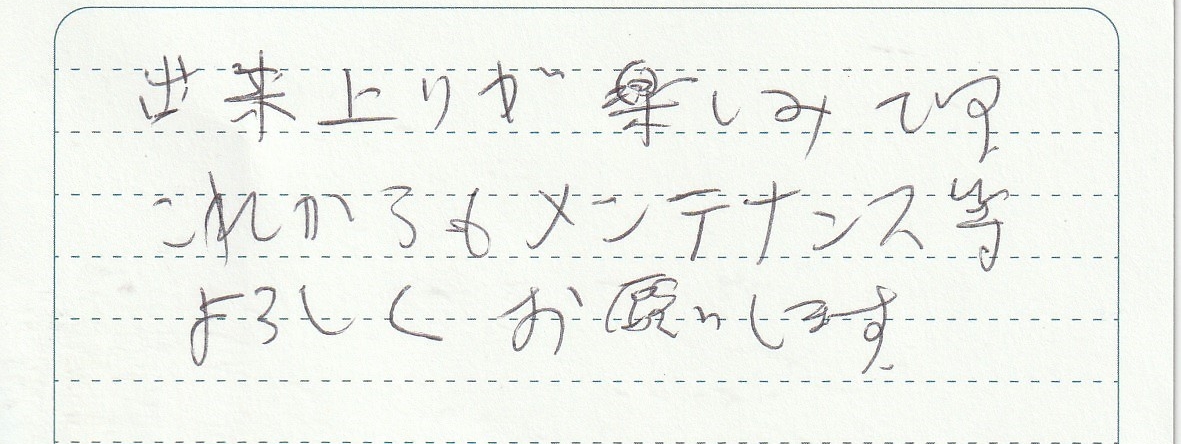 出来上りが楽しみです
これからもメンテナンス等
よろしくお願いします